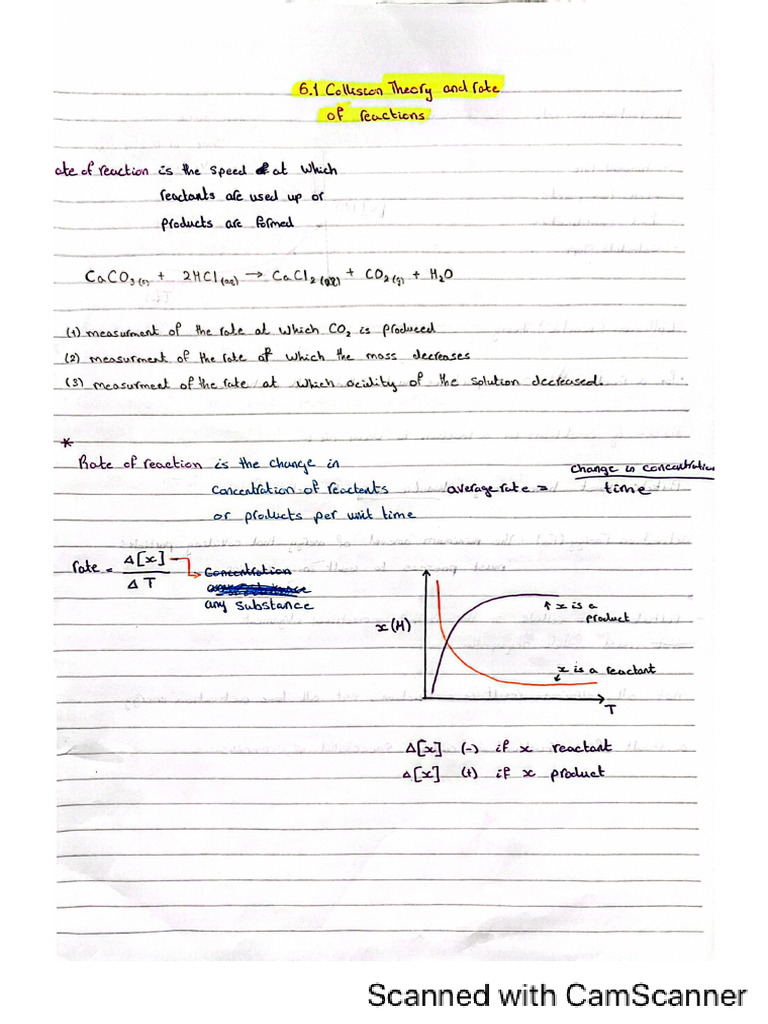 6.1 Collision Theory and rate
of reactions
ate of reaction is the speed at which
reactants are used up or
products are formed
CaCO3(s) + 2HCl(aq) → CaCl2(aq) + CO2(g) + H2O
(1) measurment of the rate at which CO2 is produced
(2) measurment of the rate of which the mass decreases
(3) measurment of the rate at which acidity of the solution decreased.
*
Rate of reaction is the change in
concentration of reactents
or products per unit time
average rate = change in concentration
time
rate = Δ[x]
ΔT
Concentration
any substance
x(M)
↑ x is a
product
x is a reactant
T
Δ[x] (-) if x reactant
Δ[x] (+) if x product
Scanned with CamScanner